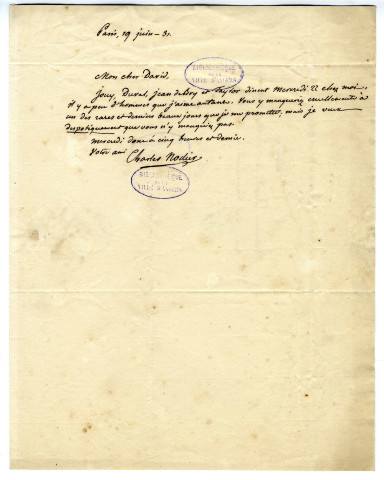 Paris, 19 juin - 31.
BIBLIOTHÈQUE
DE LA
VILLE D'ANGERS
Mon cher David,
Jouy, Duval, Jean debry et Taylor dinent mercredi 22 chez moi.
il y a peu d'hommes que j'aime autant. Vous y manqueriez cruellement à
un des rares et derniers beaux jours que je me promettes, mais je veux
despotiquement que vous n'y manquiez pas.
mercredi donc à cinq heures et demie.
Votre ami
Charles Nodier
BIBLIOTHÈQUE
DE LA
VILLE D'ANGERS